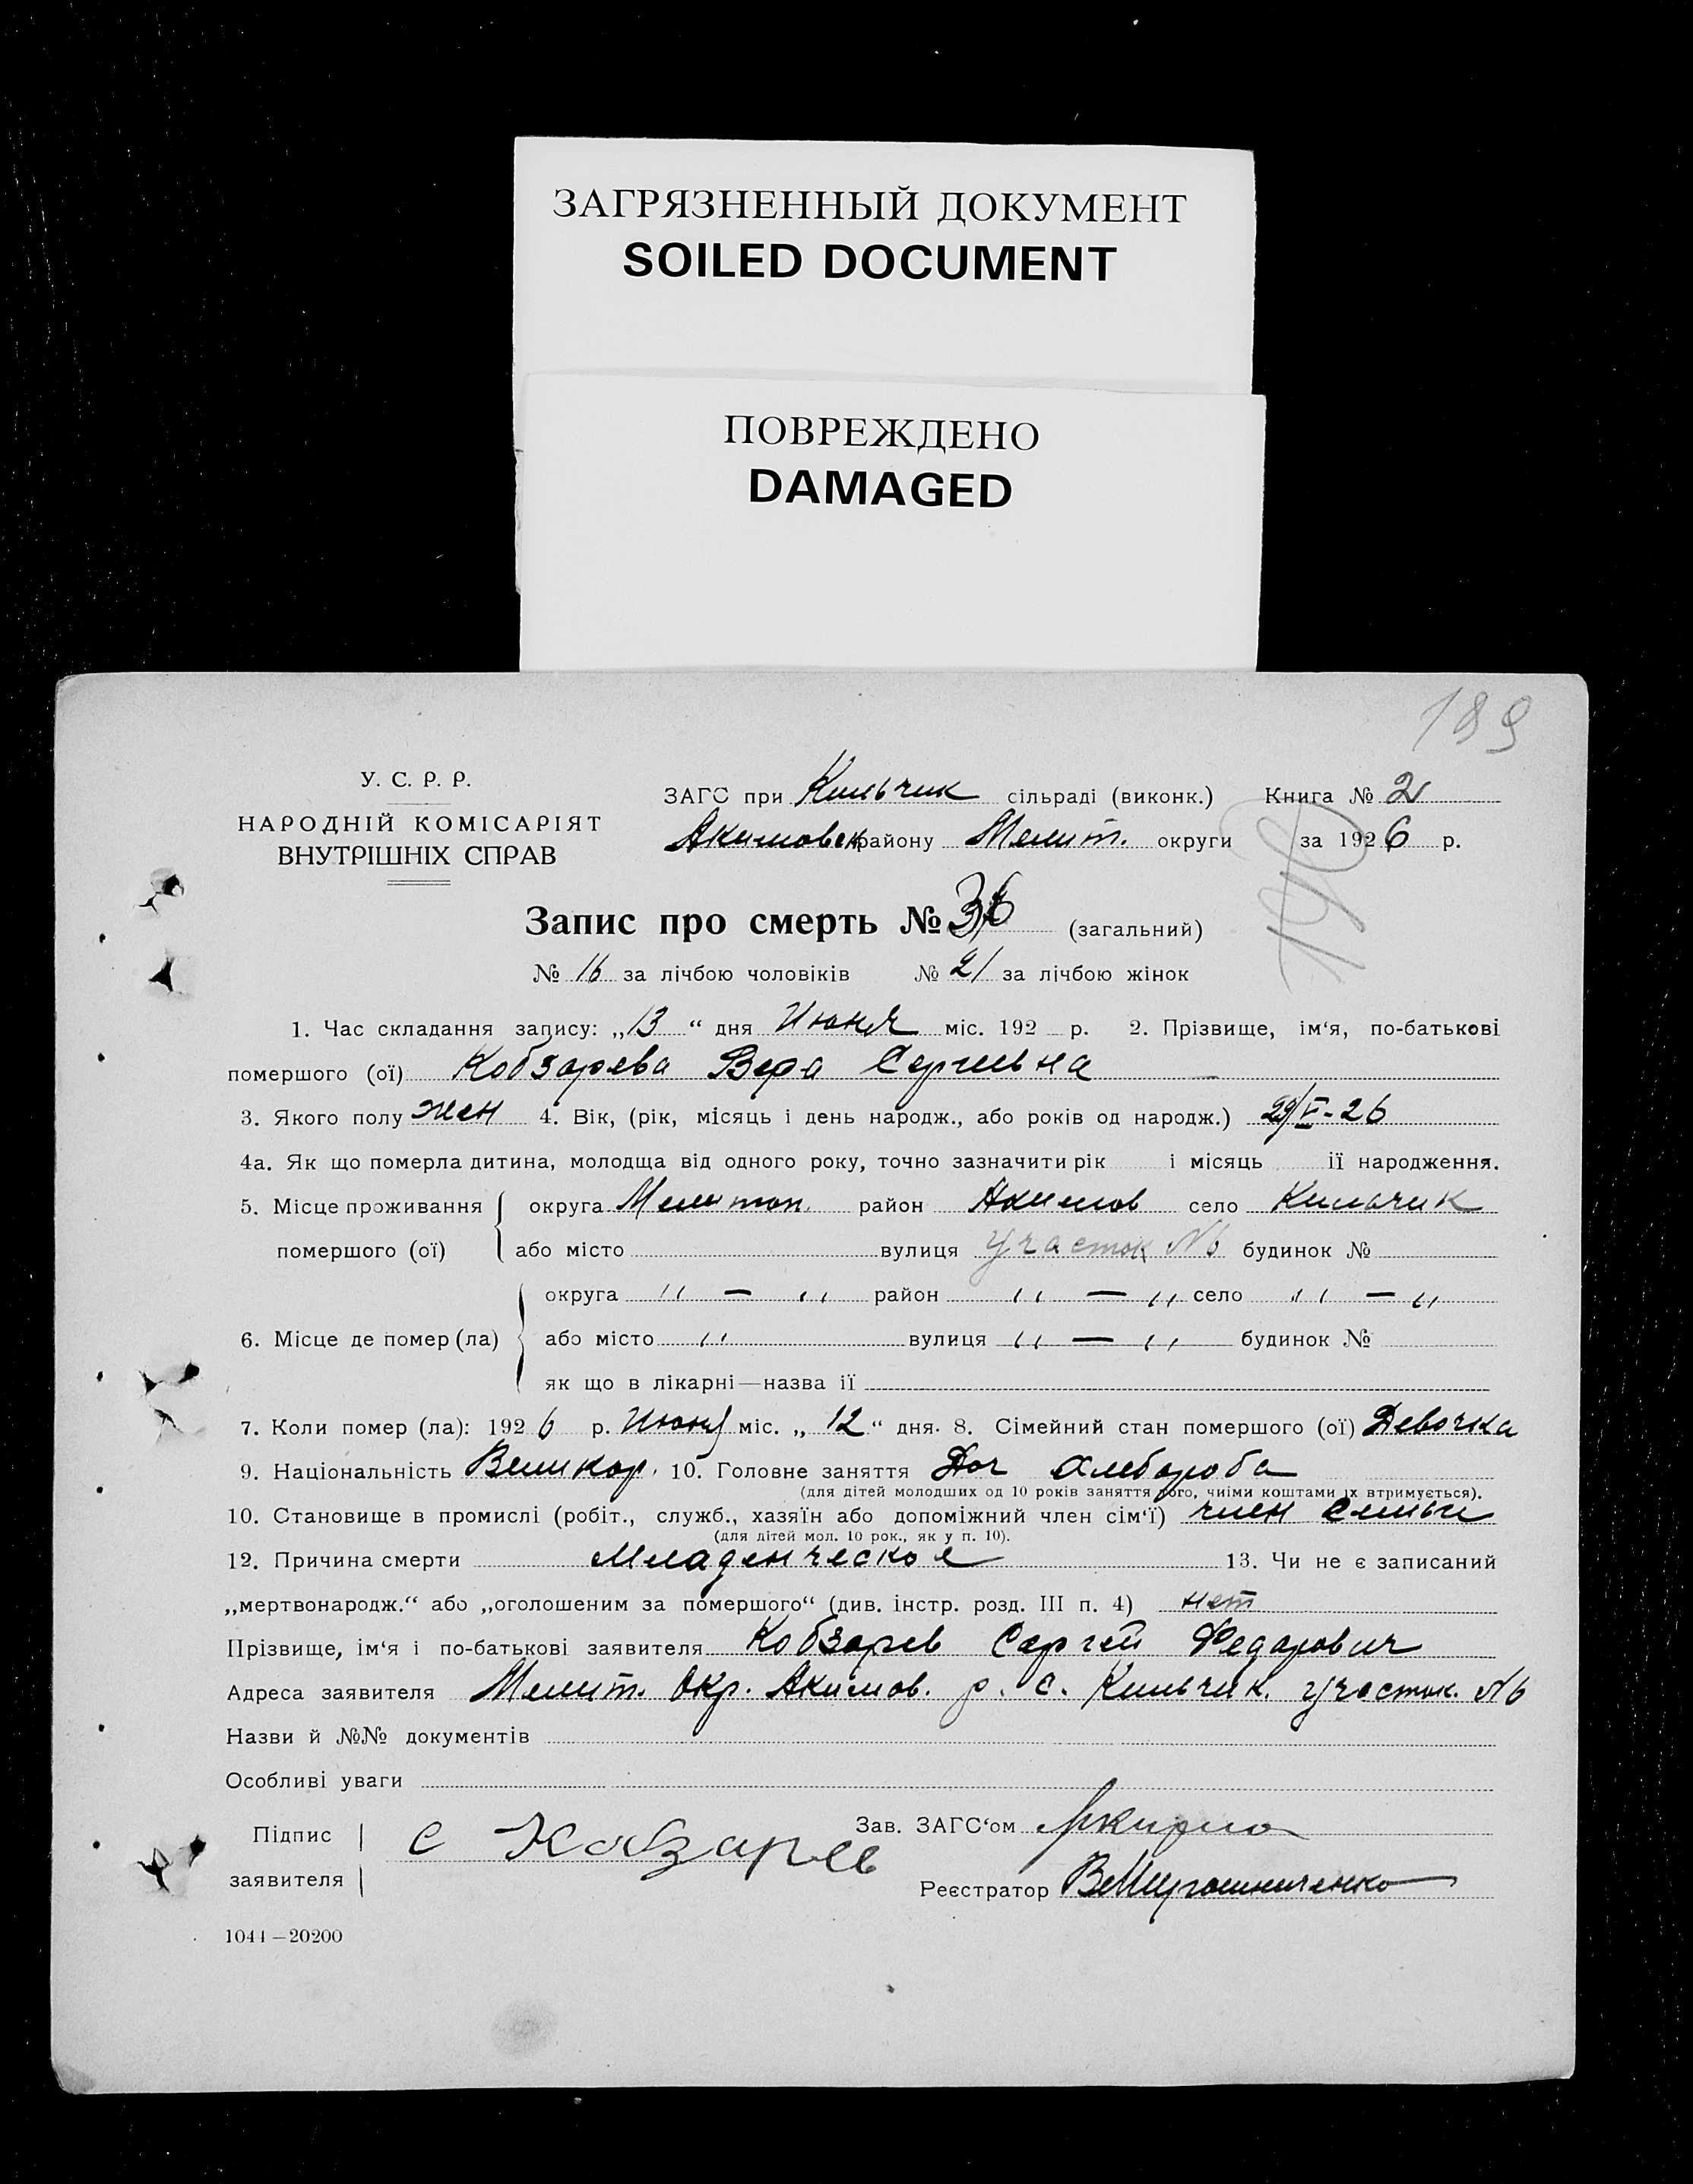 ЗАГРЯЗНЕННЫЙ ДОКУМЕНТ
SOILED DOCUMENT
ПОВРЕЖДЕНО
DAMAGED
189
У. С. Р. Р.
НАРОДНІЙ КОМІСАРІЯТ
ВНУТРІШНІХ СПРАВ
ЗАГС при Кильчик сільраді (виконк.) Книга № 2
Акимовск району Мелит. округи за 1926 р.
190
Запис про смерть № 36 (загальний)
№ 16 за лічбою чоловіків № 21 за лічбою жінок
1. Час складання запису: „13“ дня Июня міс. 192 р. 2. Прізвище, ім‘я, по-батькові
помершого (ої) Кобзарева Вера Сергеевна
3. Якого полу жен 4. Вік, (рік, місяць і день народж., або років од народж.) 29/V-26
4а. Як що померла дитина, молодща від одного року, точно зазначити рік і місяць її народження.
5. Місце проживання округа Мелитоп. район Акимов село Кильчик
помершого (ої) або місто вулиця участок №6 будинок №
округа " — " район " — " село " — "
6. Місце де помер (ла) або місто " вулиця " — " будинок №
як що в лікарні—назва її
7. Коли помер (ла): 1926 р. Июня міс. „12“ дня. 8. Сімейний стан помершого (ої) Девочка
9. Національність Великор. 10. Головне заняття Доч хлебороба
(для дітей молодших од 10 років заняття того, чиїми коштами їх втримується).
10. Становище в промислі (робіт., служб., хазяїн або допоміжний член сім‘ї) член семьи
(для дітей мол. 10 рок., як у п. 10).
12. Причина смерти Младенческое 13. Чи не є записаний
„мертвонародж.“ або „оголошеним за помершого“ (див. інстр. розд. III п. 4) нет
Прізвище, ім‘я і по-батькові заявителя Кобзарев Сергей Федорович
Адреса заявителя Мелит. Окр. Акимов. р. с. Кильчик. участок. №6
Назви й №№ документів
Особливі уваги
Підпис заявителя С Кобзарев
Зав. ЗАГС‘ом
Реєстратор ВМирошниченко
1044—20200